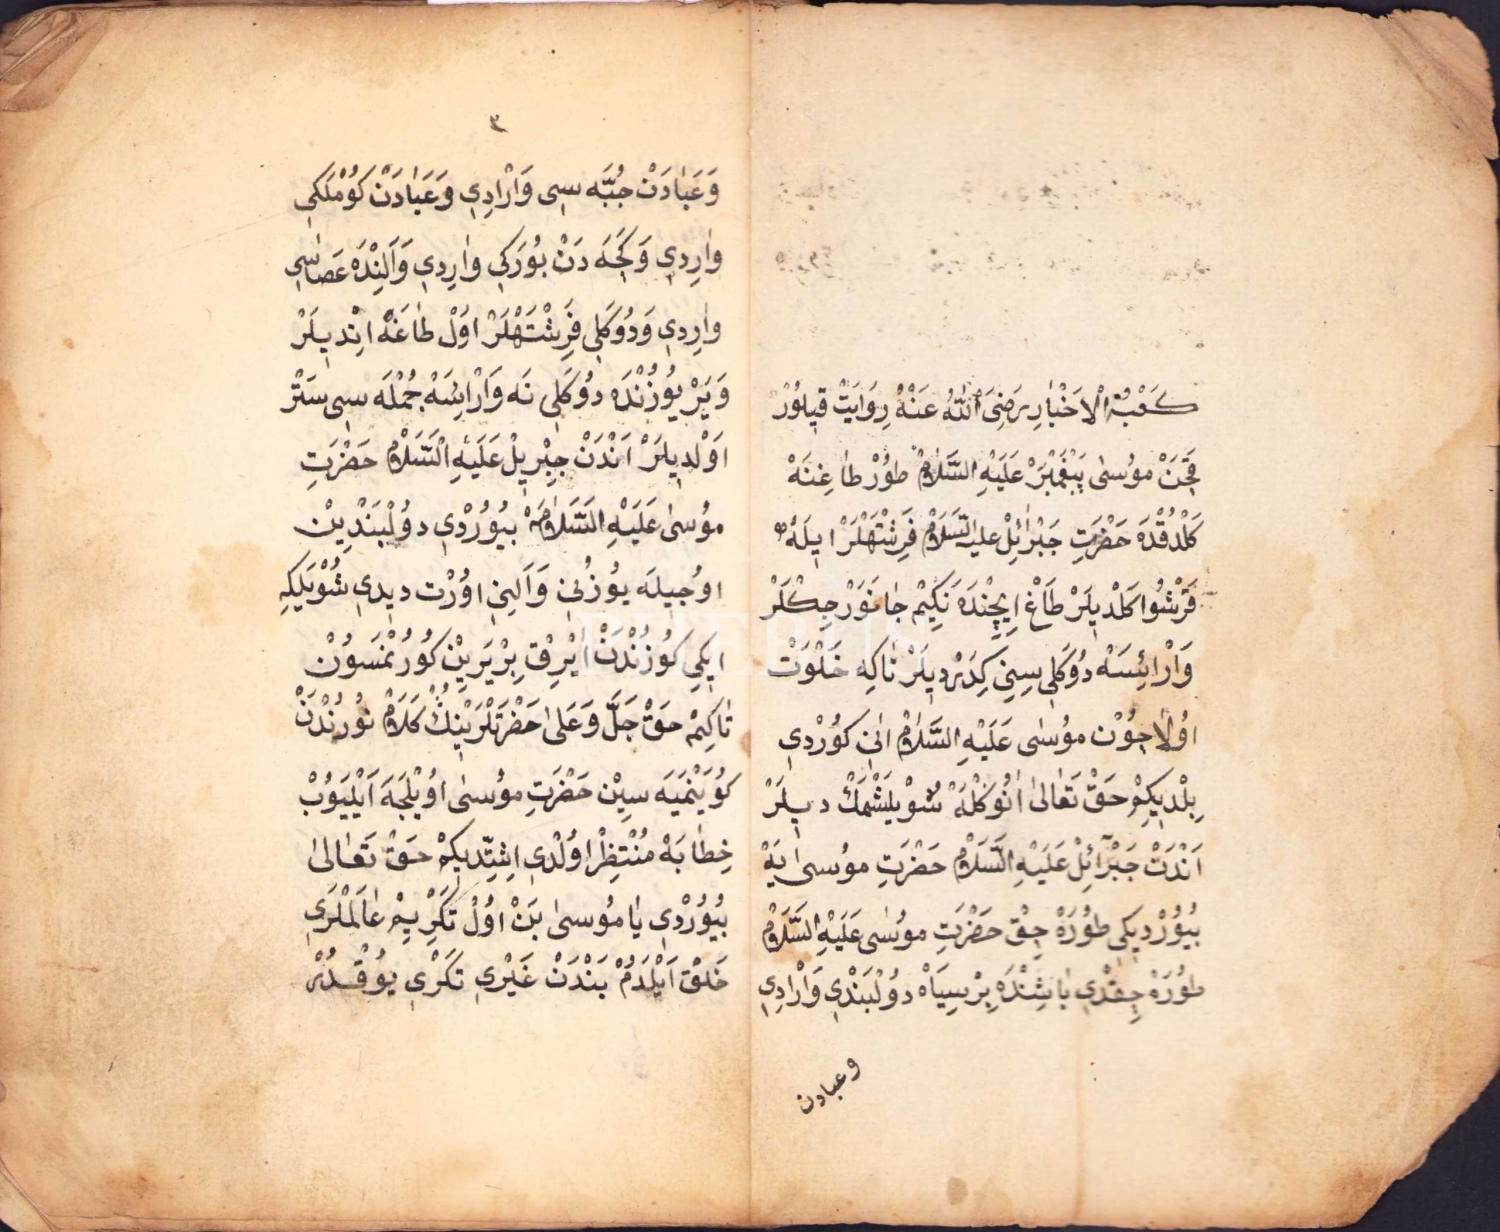 كَعْبُ الْاَخْبَارِ رَضِىَ اللّٰهُ عَنْهُ رِوَايَتْ قِيلُوْرْ
قَچَنْ مُوسٰى پَيْغَمْبَرْ عَلَيْهِ السَّلَامْ طُورْ طَاغِنَهْ
كَلْدُقْدَهْ حَضْرَتِ جَبْرَائِلْ عليه السَّلَامْ فَرِشْتَهْلَرْ ايلَهْ
قَرْشُوا كَلْدِيلَرْ طَاغْ اِيچِنْدَهْ نَكِيمْ جَانَوَرْجِكْلَرْ
وَارْايْسَهْ دُوكَلِى سِينِ كِدَرْدِيلَرْ تَاكِه خَلْوَتْ
اُولَاجُوْنْ مُوسٰى عَلَيْهِ السَّلَامْ اَنِى كُورْدِى
بِلْدِيكِمْ حَقْ تَعَالٰى اَنُوكْلَهْ سُوْيلَشْمَكْ ديلَرْ
اَنْدَنْ جَبْرَائِلْ عَلَيْهِ السَّلَامْ حَضْرَتِ مُوسٰى يَهْ
بُيُورْدِيكِى طُورَهْ چِقْ حَضْرَتِ مُوسٰى عَلَيْهِ السَّلَامْ
طُورَهْ چِقْدِى بَاشِنْدَهْ بِرْسِيَاهْ دُولْبَنْدِى وَارْادِى
وعبادن
٣
وَعَبَادَنْ جُبَّه سِى وَارْادِى وَعَبَادَنْ كُوْمْلَكِى
وَارِدِى وَكَچَهْ دَنْ بُورَكِى وَارِدِى وَاَلِنْدَهْ عَصَاسِى
وَارِدِى وَدُوكَلِى فَرِشْتَهْلَرْ اوَلْ طَاغَهْ اِنْدِيلَرْ
وَيَرْ يُوزُنْدَهْ دُوكَلِى نَه وَارْايسَهْ جُمْلَه سِى سَتْر
اَوْلدِيلَرْ اَنْدَنْ جِبْرِيلْ عَلَيْهِ السَّلَامْ حَضْرَتِ
مُوسٰى عَلَيْهِ السَّلَامَهْ بُيُورْدِى دُولْبَنْدِيِنْ
اُوجِيلَه يُوزُنِى وَاَلِنِى اُورْت ديدِى شُوْيلَكِه
ايكِى كُوزُنْدَنْ اَيْرِقْ بِرْيَرِيْن كُورُنْمَسُوْن
تَاكِيمْ حَقْ جَلَّ وَعَلٰى حَضْرَتْلَرِينِڭْ كَلَامْ نُورُنْدَنْ
كُوَيْنْمَيَه سِيْن حَضْرَتِ مُوسٰى اُويْلَجَهْ اَيْلَيُوبْ
خِطَابَهْ مُنْتِظِرْ اوُلْدِى اِشِتِّدِيكِمْ حَقْ تَعَالٰى
بُيُورْدِى يَا مُوسٰى بَنْ اوُلْ تَكْرِيمْ عَالَمْلَرِى
خَلْقْ اَيْلَدُمْ بَنْدَنْ غَيْرِى تَكْرِى يُوقْدُرْ